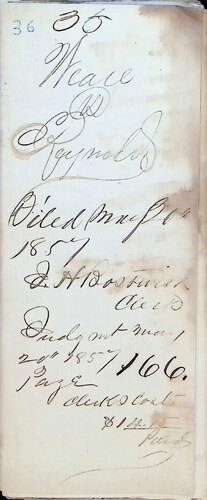 36
35
Weare
vs
Reynolds
Filed May 20th
1857
J. H. Bostwick
Clerk
Judgmt May
20th 1857 166.
Page
clerks costs
Paid